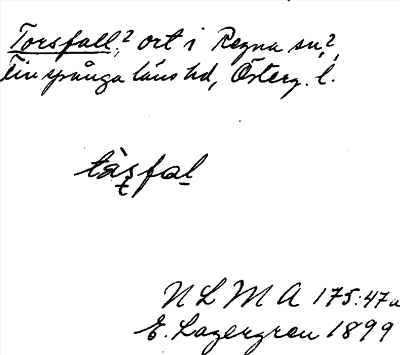 Torsfall,? ort i Regna sn?,
Finspånga läns hd, Österg. l.
tàs̱fal̲
N L M A 175:47a
E. Lagergren 1899